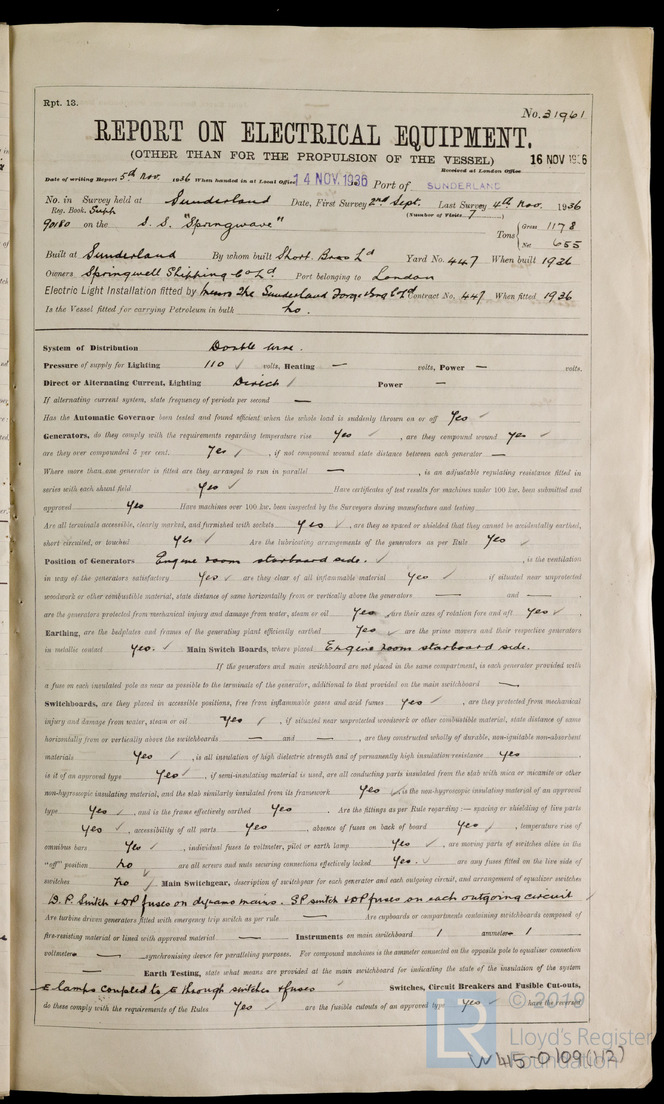 Rpt. 13.
No. 31961
REPORT ON ELECTRICAL EQUIPMENT.
(OTHER THAN FOR THE PROPULSION OF THE VESSEL)
16 NOV 1936
Received at London Office
Date of writing Report 5th Nov. 1936 When handed in at Local Office 14 NOV. 1936 Port of SUNDERLAND
No. in Survey held at Sunderland Date, First Survey 2nd Sept. Last Survey 4th Nov. 1936
Reg. Book. Suph (Number of Visits 7)
90180 on the S. S. "Springwave" Tons Gross 1178
Net 655
Built at Sunderland By whom built Short Bros Ld Yard No. 447 When built 1936
Owners Springwell Shipping Co Ld. Port belonging to London
Electric Light Installation fitted by Messrs The Sunderland Forge & Eng Co Ld Contract No. 447 When fitted 1936
Is the Vessel fitted for carrying Petroleum in bulk No.
System of Distribution Double wire.
Pressure of supply for Lighting 110 ✓ volts, Heating — volts, Power — volts.
Direct or Alternating Current, Lighting Direct / Power —
If alternating current, state frequency of periods per second —
Has the Automatic Governor been tested and found efficient when the whole load is suddenly thrown on or off Yes ✓
Generators, do they comply with the requirements regarding temperature rise Yes ✓, are they compound wound Yes ✓
are they over compounded 5 per cent. Yes /, if not compound wound state distance between each generator —
Where more than one generator is fitted are they arranged to run in parallel —, is an adjustable regulating resistance fitted in
series with each shunt field Yes ✓ Have certificates of test results for machines under 100 kw. been submitted and
approved Yes Have machines over 100 kw. been inspected by the Surveyors during manufacture and testing
Are all terminals accessible, clearly marked, and furnished with sockets Yes ✓, are they so spaced or shielded that they cannot be accidentally earthed,
short circuited, or touched Yes ✓ Are the lubricating arrangements of the generators as per Rule Yes ✓
Position of Generators Engine room starboard side. ✓, is the ventilation
in way of the generators satisfactory Yes ✓ are they clear of all inflammable material Yes ✓ if situated near unprotected
woodwork or other combustible material, state distance of same horizontally from or vertically above the generators — and —,
are the generators protected from mechanical injury and damage from water, steam or oil Yes are their axes of rotation fore and aft Yes ✓.
Earthing, are the bedplates and frames of the generating plant efficiently earthed Yes ✓ are the prime movers and their respective generators
in metallic contact Yes. ✓ Main Switch Boards, where placed Engine room starboard side.
If the generators and main switchboard are not placed in the same compartment, is each generator provided with
a fuse on each insulated pole as near as possible to the terminals of the generator, additional to that provided on the main switchboard —
Switchboards, are they placed in accessible positions, free from inflammable gases and acid fumes Yes ✓, are they protected from mechanical
injury and damage from water, steam or oil Yes ✓, if situated near unprotected woodwork or other combustible material, state distance of same
horizontally from or vertically above the switchboards — and —, are they constructed wholly of durable, non-ignitable non-absorbent
materials Yes ✓, is all insulation of high dielectric strength and of permanently high insulation resistance Yes
is it of an approved type Yes ✓, if semi-insulating material is used, are all conducting parts insulated from the slab with mica or micanite or other
non-hygroscopic insulating material, and the slab similarly insulated from its framework Yes ✓, is the non-hygroscopic insulating material of an approved
type Yes ✓, and is the frame effectively earthed Yes. Are the fittings as per Rule regarding:— spacing or shielding of live parts
Yes ✓, accessibility of all parts Yes, absence of fuses on back of board Yes ✓, temperature rise of
omnibus bars Yes ✓, individual fuses to voltmeter, pilot or earth lamp Yes ✓, are moving parts of switches alive in the
"off" position No are all screws and nuts securing connections effectively locked Yes. ✓ are any fuses fitted on the live side of
switches No ✓ Main Switchgear, description of switchgear for each generator and each outgoing circuit, and arrangement of equalizer switches
D. P. Switch & DP fuses on dynamo mains. SP switch & DP fuses on each outgoing circuit
Are turbine driven generators fitted with emergency trip switch as per rule — Are cupboards or compartments containing switchboards composed of
fire-resisting material or lined with approved material — Instruments on main switchboard 1 ammeter 1
voltmeter — synchronising device for paralleling purposes. For compound machines is the ammeter connected on the opposite pole to equaliser connection
— Earth Testing, state what means are provided at the main switchboard for indicating the state of the insulation of the system
E lamps coupled to E through switches & fuses Switches, Circuit Breakers and Fusible Cut-outs,
do these comply with the requirements of the Rules Yes ✓ are the fusible cutouts of an approved type Yes ✓ have the reversed
LR © 2019
Lloyd's Register
Foundation
W415-0109(1/2)